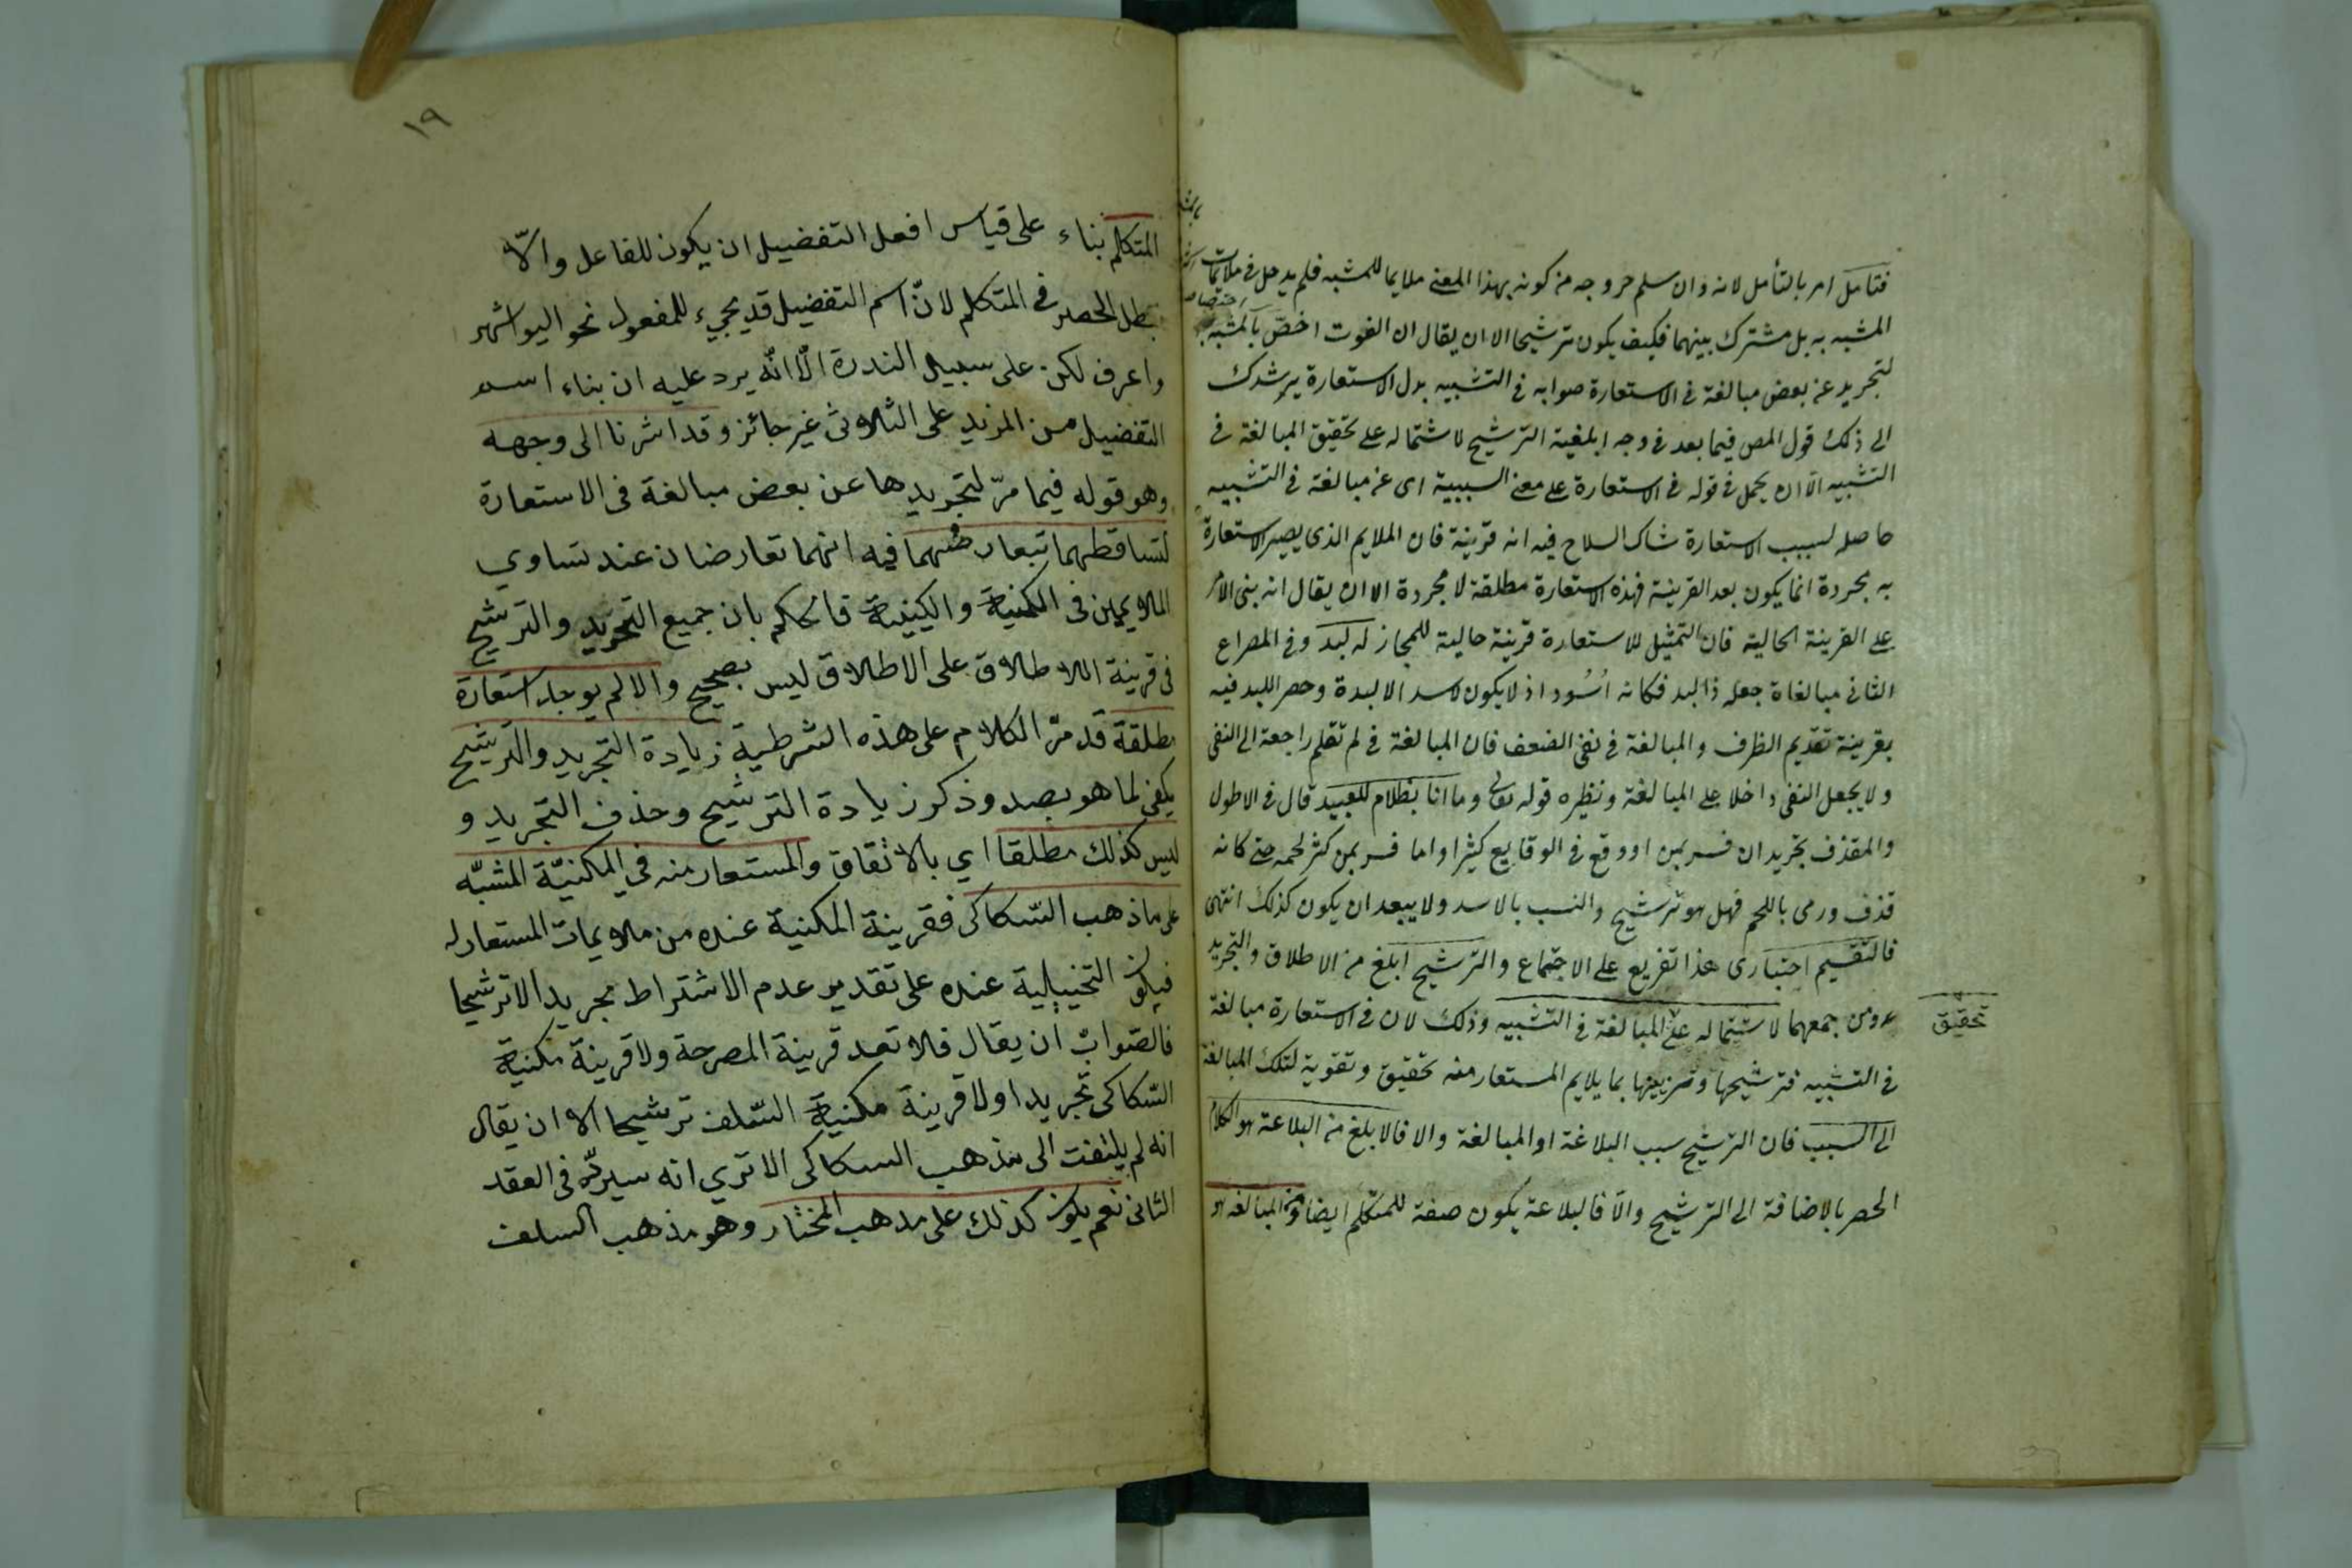 فتامل امر بالتأمل لانه وان سلم خروجه من كونه بهذا المعنى ملايما للمشبه فلم يدخل فى ملائمات
المشبه به بل مشترك بينهما فكيف يكون ترشيحا الا ان يقال ان الفوت اخصّ بالمشبه
لتجريد عن بعض مبالغة فى الاستعارة صوابه فى التشبيه بدل الاستعارة يرشدك
الى ذلك قول المص فيما بعد فى وجه ابلغية الترشيح لاشتماله على تحقيق المبالغة فى
التشبيه الا ان يحمل فى قوله فى الاستعارة على معنى السببية اى عن مبالغة فى التشبيه
حاصله لسبب الاستعارة شاك السلاح فيه انه قرينة فان الملايم الذى يصير الاستعارة
به مجردة انما يكون بعد القرينة فهذه الاستعارة مطلقة لا مجردة الا ان يقال انه بنى الامر
على القرينة الحالية فان التمثيل للاستعارة قرينة حالية للمجاز له لبد وفى المصراع
الثانى مبالغاة جعله ذا لبد فكانه اُسُود اذ لا يكون لاسد الا لبدة وحصر اللبد فيه
بقرينة تقديم الظرف والمبالغة فى نفى الضعف فان المبالغة فى لم تقلم راجعة الى النفى
ولا يجعل النفى داخلا على المبالغة ونظيره قوله تعالى وما انا بظلام للعبيد قال فى الاطول
والمقذف تجريد ان فسر بمن اووقع فى الوقايع كثيرا واما فسر بمن كثر لحمه حتى كانه
قذف ورمى باللحم فهل هو ترشيح وانسب بالاسد ولا يبعد ان يكون كذلك انتهى
فالتقسيم اعتبارى هذا تفريع على الاجتماع والترشيح ابلغ من الاطلاق والتجريد
ومن جمعهما لاشتماله على المبالغة فى التشبيه وذلك لان فى الاستعارة مبالغة
تحقيق
فى التشبيه فترشيحها وتزيينها بما يلايم المستعار منه تحقيق وتقوية لتلك المبالغة
الى السبب فان الترشيح سبب البلاغة او المبالغة والا فالابلغ من البلاغة هو الكلام
الحصر بالاضافة الى الترشيح والّا فالبلاعة يكون صفة للمتكلم ايضا ومن المبالغة هو
١٩
المتكلم بناء على قياس افعل التفضيل ان يكون للفاعل والّا
يبطل الحصر فى المتكلم لانّ اسم التفضيل قد يجيء للمفعول نحو اشهر
واعرف لكن على سبيل الندرة الّا انّه يرد عليه ان بناء اسم
التفضيل من المزيد على الثلاثى غير جائز وقد اشرنا الى وجهه
وهو قوله فيما مرّ لتجريدها عن بعض مبالغة فى الاستعارة
لتساقطهما تبعارضهما فيه انهما تعارضان عند تساوي
الملايمين فى الكمية والكيفية فالحكم بان جميع التجريد والترشيح
فى قرينة الاطلاق على الاطلاق ليس بصحيح والا لم يوجد استعارة
مطلقة قد مرّ الكلام على هذه الشرطية زيادة التجريد والترشيح
يكفى لما هو بصدد وذكر زيادة الترشيح وحذف التجريد و
ليس كذلك مطلقا اي بالاتفاق والمستعار منه في المكنيّة المشبّه
على ما ذهب السّكاكى فقرينة المكنية عنده من ملايمات المستعار له
فيكون التخييلية عنده على تقدير عدم الاشتراط تجريدا لا ترشيحا
فالصّواب ان يقال فلا تعد قرينة المصرحة ولا قرينة مكنية
السّكاكى تجريدا ولا قرينة مكنية السّلف ترشيحا الا ان يقال
انه لم يلتفت الى مذهب السكاكى الا تري انه سيردّه فى العقد
الثانى نعم يكون كذلك على مذهب المختار وهو مذهب السلف